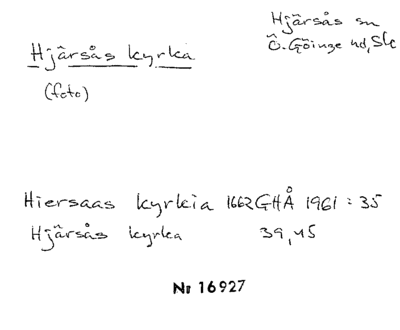 Hjärsås sn
Ö. Göinge hd, Skå
Hjärsås kyrka
(foto)
Hiersaas kyrkia 1662 GHÅ 1961 : 35
Hjärsås kyrka 39, 45
Nr 16927